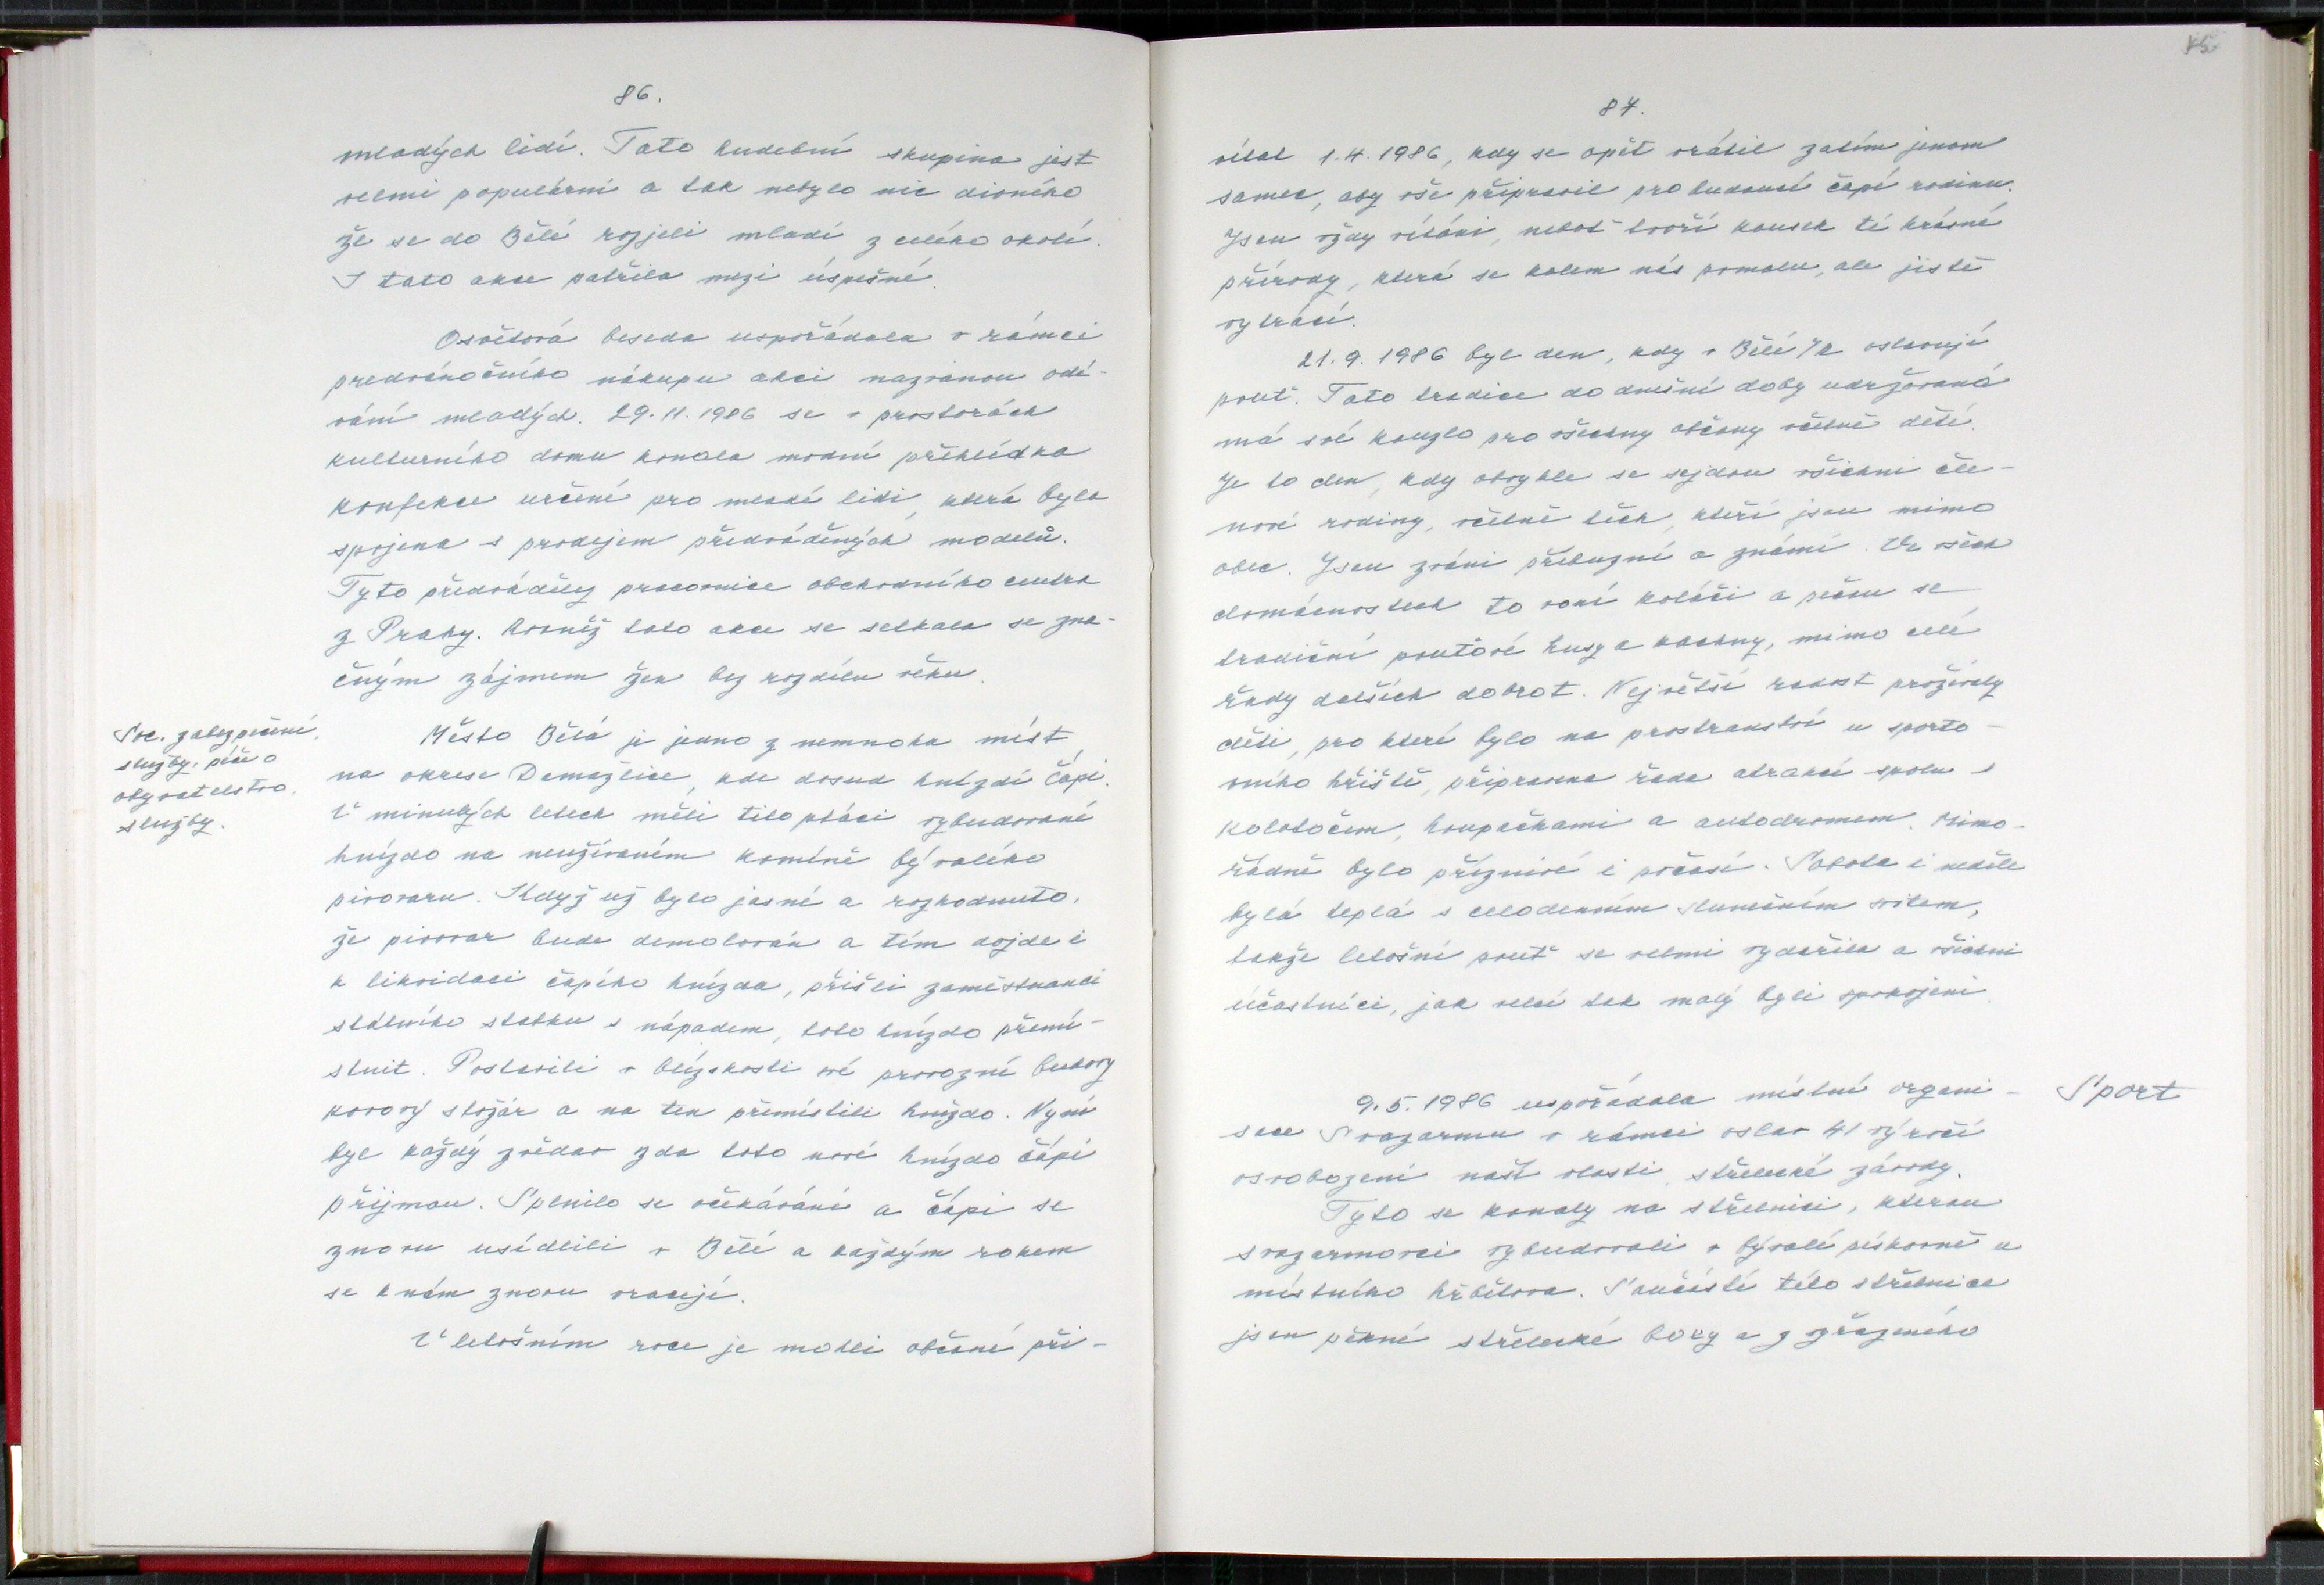 86.
mladých lidí. Tato hudební skupina jest
velmi populární a tak nebylo nic divného
že se do Bělé rozjeli mladí z celého okolí.
I tato akce patřila mezi úspěšné.
Osvětová beseda uspořádala v rámci
předvánočního nákupu akci nazvanou odí-
vání mladých. 29.11.1986 se v prostorách
kulturního domu konala modní přehlídka
konfekce určené pro mladé lidi, která byla
spojena s prodejem předváděných modelů.
Tyto předváděly pracovnice obchodního centra
z Prahy. Rovněž tato akce se setkala se zna-
čným zájmem žen bez rozdílu věku.
Soc. zabezpečení,
služby, péče o
obyvatelstvo,
služby.
Město Bělá je jedno z nemnoha míst
na okrese Domažlice, kde dosud hnízdí čápi.
V minulých letech měli tito ptáci vybudované
hnízdo na neužívaném komíně bývalého
pivovaru. Když už bylo jasné a rozhodnuto,
že pivovar bude demolován a tím dojde i
k likvidaci čapího hnízda, přišli zaměstnanci
státního statku s nápadem, toto hnízdo přemí-
stnit. Postavili v blízkosti své provozní budovy
kovový stožár a na ten přemístili hnízdo. Nyní
byl každý zvědav zda toto nové hnízdo čápi
přijmou. Splnilo se očekávání a čápi se
znovu usídlili v Bělé a každým rokem
se k nám znovu vracejí.
V letošním roce je mohli občané při-
45
87.
vítat 1.4.1986, kdy se opět vrátil zatím jenom
samec, aby vše připravil pro budoucí čapí rodinu.
Jsou vždy vítáni, neboť tvoří kousek té krásné
přírody, která se kolem nás pomalu, ale jistě
vytrácí.
21.9.1986 byl den, kdy v Bělé /R oslavují
pouť. Tato tradice do dnešní doby udržovaná
má své kouzlo pro všechny občany včetně dětí.
Je to den, kdy obvykle se sejdou všichni čle-
nové rodiny, včetně těch, kteří jsou mimo
obec. Jsou zváni příbuzní a známí. Ve všech
domácnostech to voní koláči a pečou se
tradiční pouťové husy a kachny, mimo celé
řady dalších dobrot. Největší radost prožívaly
děti, pro které bylo na prostranství u sporto-
vního hřiště, připravena řada atrakcí spolu s
kolotočem, houpačkami a autodromem. Mimo-
řádně bylo příznivé i počasí. Sobota i neděle
bylá teplá s celodenním slunečním svitem,
takže letošní pouť se velmi vydařila a všichni
účastníci, jak velcí tak malý byli spokojeni.
Sport
9.5.1986 uspořádala místní organi-
sace Svazarmu v rámci oslav 41 výročí
osvobození naší vlasti střelecké závody.
Tyto se konaly na střelnici, kterou
svazarmovci vybudovali v bývalé pískovně u
místního hřbitova. Součástí této střelnice
jsou pěkné střelecké boxy a z vyřazeného